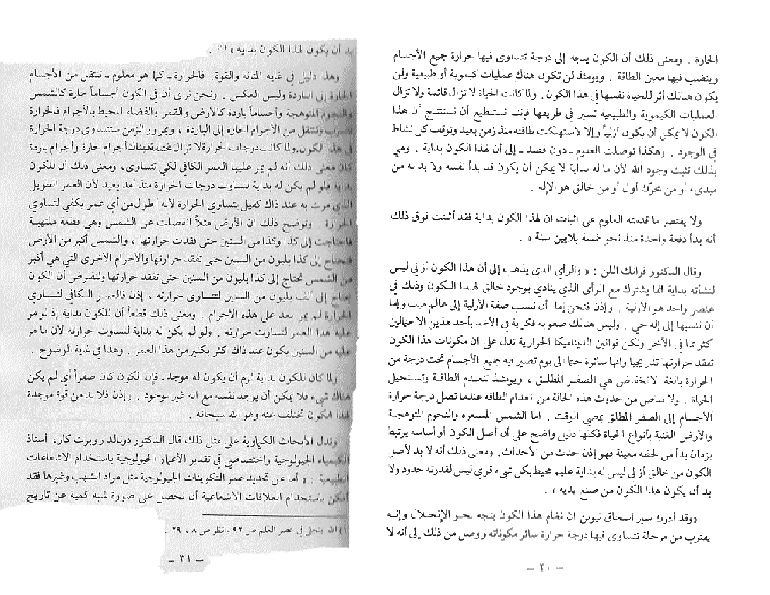 الحارة . ومعنى ذلك أن الكون يتجه إلى درجة تتساوى فيها حرارة جميع الأجسام
وينضب فيها معين الطاقة . ويومئذ لن تكون هناك عمليات كيميوية أو طبيعية ولن
يكون هنالك أثر للحياة نفسها في هذا الكون . ولما كانت الحياة لا تزال قائمة ولا تزال
العمليات الكيميوية والطبيعية تسير في طريقها فإننا نستطيع أن نستنتج أن هذا
الكون لا يمكن أن يكون أزلياً وإلا لاستهلكت طاقته منذ زمن بعيد وتوقف كل نشاط
في الوجود . وهكذا توصلت العلوم - دون قصد - إلى أن لهذا الكون بداية . وهي
بذلك تثبت وجود الله لأن ما له بداية لا يمكن أن يكون قد بدأ نفسه ولا بد له من
مبدىء أو من محرك أول أو من خالق هو الإله .
ولا يقتصر ما قدمته العلوم على اثبات ان لهذا الكون بداية فقد أثبتت فوق ذلك
أنه بدأ دفعة واحدة منذ نحو خمسة بلايين سنة » .
وقال الدكتور فرانك اللن : « والرأي الذي يذهب إلى أن هذا الكون أزلي ليس
لنشأته بداية انما يشترك مع الرأي الذي ينادي بوجود خالق لهذا الكون وذلك في
عنصر واحد هو الأزلية . وإذن فنحن إما أن ننسب صفة الأزلية إلى عالم ميت وإما
أن ننسبها إلى إله حي . وليس هنالك صعوبة فكرية في الأخذ بأحد هذين الاحتمالين
أكثر مما في الآخر ولكن قوانين الديناميكا الحرارية تدل على أن مكونات هذا الكون
تفقد حرارتها تدريجيا وانها سائرة حتما الى يوم تصير فيه جميع الأجسام تحت درجة من
الحرارة بالغة الانخفاض هي الصفر المطلق ، ويومئذ تنعدم الطاقة وتستحيل
الحياة . ولا مناص من حدوث هذه الحالة من انعدام الطاقة عندما تصل درجة حرارة
الأجسام إلى الصفر المطلق بمضي الوقت . اما الشمس المستعرة والنجوم المتوهجة
والأرض الغنية بأنواع الحياة فكلها دليل واضح على أن أصل الكون أو أساسه يرتبط
بزمان بدأ من لحظة معينة فهو إذن حدث من الأحداث . ومعنى ذلك أنه لا بد لأصل
الكون من خالق أزلي ليس له بداية عليم محيط بكل شيء قوي ليس لقدرته حدود ولا
بد أن يكون هذا الكون من صنع يديه » .
«وقد أدرك سير اسحاق نيوتن ان نظام هذا الكون يتجه نحو الإنحلال وإنه
يقترب من مرحلة تتساوى فيها درجة حرارة سائر مكوناته ووصل من ذلك إلى أنه لا
– ٣٠ –
بد أن يكون لهذا الكون بداية »
وهذا دليل في غاية المتانة والقوة . فالحرارة - كما هو معلوم - تنتقل من الأجسام
الحارة إلى الباردة وليس العكس . ونحن نرى أن في الكون أجساماً حارة كالشمس
والنجوم المتوهجة وأجساماً باردة كالأرض والقمر والفضاء المحيط بالأجرام فالحرارة
تنتقل من الأجرام الحارة إلى الباردة ، وبمرور الزمن ستتساوى درجة الحرارة
هذا الكون
معنى ذلك أنه لم يمر عليها العمر الكافي لكي تتساوى، ومعنى ذلك أن للكون
فلو لم يكن له بداية لتساوت درجات الحرارة منذ أمد بعيد لأن العمر الطويل
الذي مرت به عند ذاك كفيل بتساوي الحرارة لأنه أطول من أي عمر يكفي لتساوي
الحرارة . وتوضح ذلك ان الأرض مثلاً انفصلت عن الشمس وهي قطعة ملتهبة
فاحتاجت إلى كذا وكذا من السنين حتى فقدت حرارتها ، والشمس أكبر من الأرض
تحتاج إلى كذا بليون من السنين حتى تفقد حرارتها والأجرام الأخرى التي هي أكبر
من الشمس تحتاج إلى كذا بليون من السنين حتى تفقد حرارتها ولنفرض أن الكون
يحتاج إلى ألف بليون من السنين لتتساوى حرارته ، إذن فالعمر الكافي لتساوي
الحرارة لم يمر بعد على هذه الأجرام . ومعنى ذلك قطعاً أن للكون بداية إذ لم يمر
عليه هذا العمر لتساوت حرارته . ولو لم يكن له بداية لتساوت حرارته لأن ما مر
عليه من السنين يكون عند ذاك أكثر بكثير من هذا العمر . وهذا في غاية الوضوح .
ولما كان للكون بداية لزم أن يكون له موجد . فإن الكون كان صفراً أي لم يكن
هناك شيء فلا يمكن أن يوجد نفسه مع أنه غير موجود . وإذن فلا بد من قوة موجدة
لهذا الكون تختلف عنه وهو الله سبحانه .
وتدل الأبحاث الكيماوية على مثل ذلك، قال الدكتور دونالد روبرت كار، أستاذ
الكيمياء الجيولوجية واختصاصي في تقدير الأعمار الجيولوجية باستخدام الاشعاعات
الطبيعية : « أما عن تحديد عمر التكوينات الجيولوجية مثل مواد الشهب وغيرها فقد
أمكن باستخدام العلاقات الاشعاعية أن نحصل على صورة شبه كمية عن تاريخ
الله يتجلى في عصر العلم ص ٩٢ ، نظر ص ٨ ، ٢٩ .
– ٣١ –